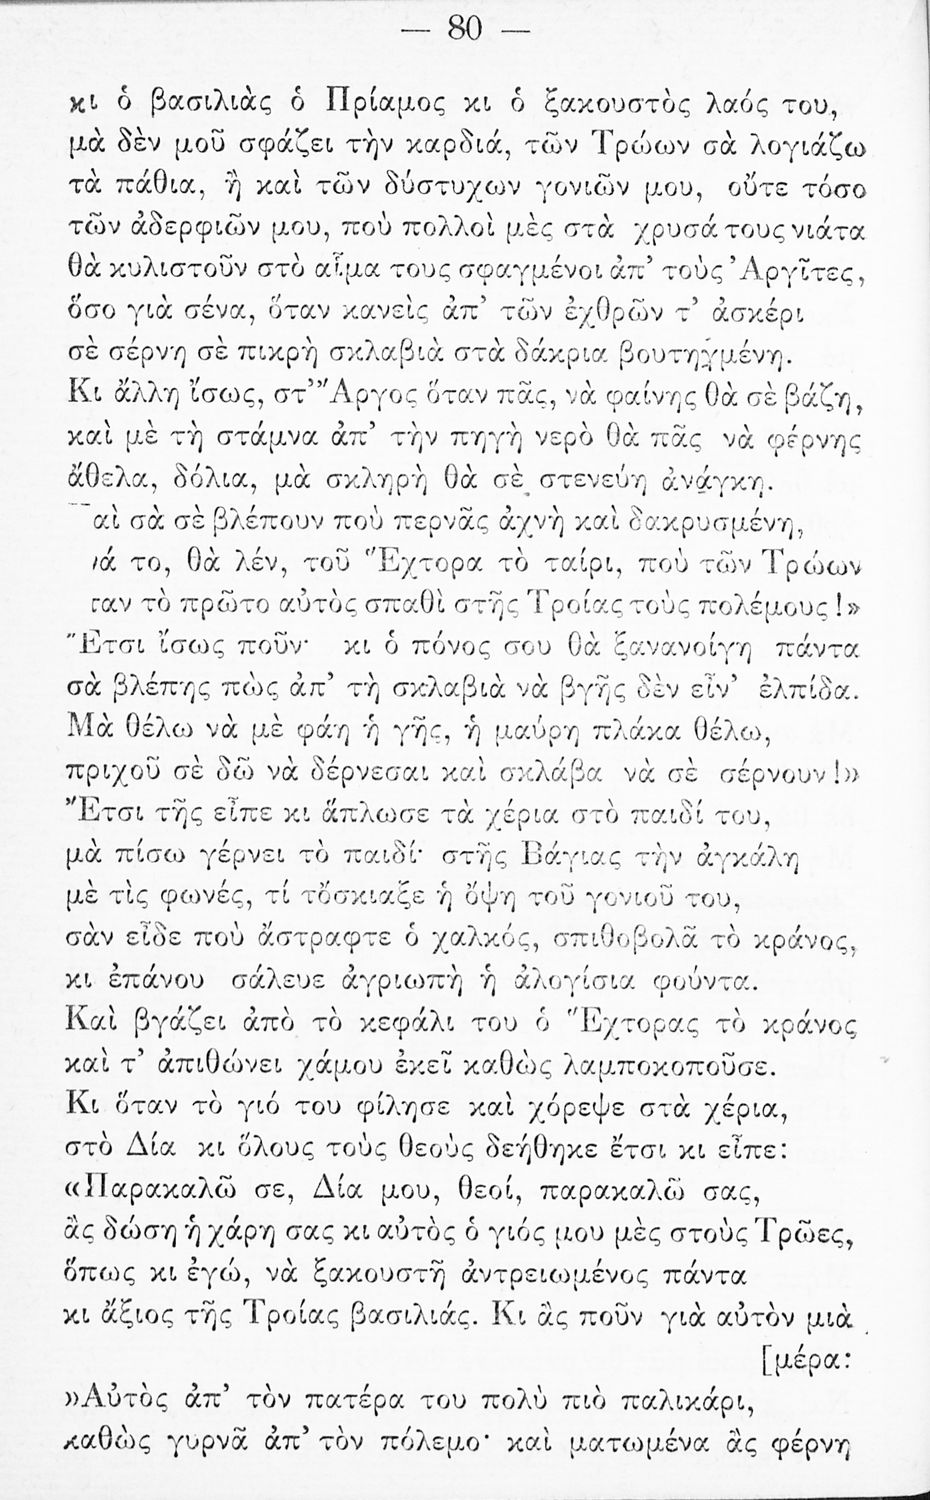 — 80 —
κι ὁ βασιλιὰς ὁ Πρίαμος κι ὁ ξακουστὸς λαός του,
μὰ δὲν μοῦ σφάζει τὴν καρδιά, τῶν Τρώων σὰ λογιάζω
τὰ πάθια, ἢ καὶ τῶν δύστυχων γονιῶν μου, οὔτε τόσο
τῶν ἀδερφιῶν μου, ποὺ πολλοὶ μὲς στὰ χρυσά τους νιάτα
θὰ κυλιστοῦν στὸ αἷμα τους σφαγμένοι ἀπ’ τοὺς Ἀργῖτες,
ὅσο γιὰ σένα, ὅταν κανεὶς ἀπ’ τῶν ἐχθρῶν τ’ ἀσκέρι
σὲ σέρνῃ σὲ πικρὴ σκλαβιὰ στὰ δάκρια βουτηγμένη.
Κι ἄλλη ἴσως, στ’ Ἄργος ὅταν πᾶς, νὰ φαίνῃς θὰ σὲ βάζῃ,
καὶ μὲ τὴ στάμνα ἀπ’ τὴν πηγὴ νερὸ θὰ πᾶς νὰ φέρνῃς
ἄθελα, δόλια, μὰ σκληρὴ θὰ σὲ στενεύῃ ἀνάγκη.
αὶ σὰ σὲ βλέπουν ποὺ περνᾶς ἀχνὴ καὶ δακρυσμένη,
ά το, θὰ λέν, τοῦ Ἕχτορα τὸ ταίρι, ποὺ τῶν Τρώων
ταν τὸ πρῶτο αὐτὸς σπαθὶ στῆς Τροίας τοὺς πολέμους!»
Ἔτσι ἴσως ποῦν· κι ὁ πόνος σου θὰ ξανανοίγῃ πάντα
σὰ βλέπῃς πὼς ἀπ’ τὴ σκλαβιὰ νὰ βγῇς δὲν εἶν’ ἐλπίδα.
Μὰ θέλω νὰ μὲ φάῃ ἡ γῆς, ἡ μαύρη πλάκα θέλω,
πριχοῦ σὲ δῶ νὰ δέρνεσαι καὶ σκλάβα νὰ σὲ σέρνουν!»
Ἔτσι τῆς εἶπε κι ἅπλωσε τὰ χέρια στὸ παιδί του,
μὰ πίσω γέρνει τὸ παιδί· στῆς Βάγιας τὴν ἀγκάλη
μὲ τὶς φωνές, τί τὄσκιαξε ἡ ὄψη τοῦ γονιοῦ του,
σὰν εἶδε ποὺ ἄστραφτε ὁ χαλκός, σπιθοβολᾶ τὸ κράνος,
κι ἐπάνου σάλευε ἀγριωπὴ ἡ ἀλογίσια φούντα.
Καὶ βγάζει ἀπὸ τὸ κεφάλι του ὁ Ἕχτορας τὸ κράνος
καὶ τ’ ἀπιθώνει χάμου ἐκεῖ καθὼς λαμποκοποῦσε.
Κι ὅταν τὸ γιό του φίλησε καὶ χόρεψε στὰ χέρια,
στὸ Δία κι ὅλους τοὺς θεοὺς δεήθηκε ἔτσι κι εἶπε:
«Παρακαλῶ σε, Δία μου, θεοί, παρακαλῶ σας,
ἂς δώσῃ ἡ χάρη σας κι αὐτὸς ὁ γιός μου μὲς στοὺς Τρῶες,
ὅπως κι ἐγώ, νὰ ξακουστῇ ἀντρειωμένος πάντα
κι ἄξιος τῆς Τροίας βασιλιάς. Κι ἂς ποῦν γιὰ αὐτὸν μιὰ
[μέρα:
»Αὐτὸς ἀπ’ τὸν πατέρα του πολὺ πιὸ παλικάρι,
καθὼς γυρνᾶ ἀπ’ τὸν πόλεμο· καὶ ματωμένα ἂς φέρνῃ